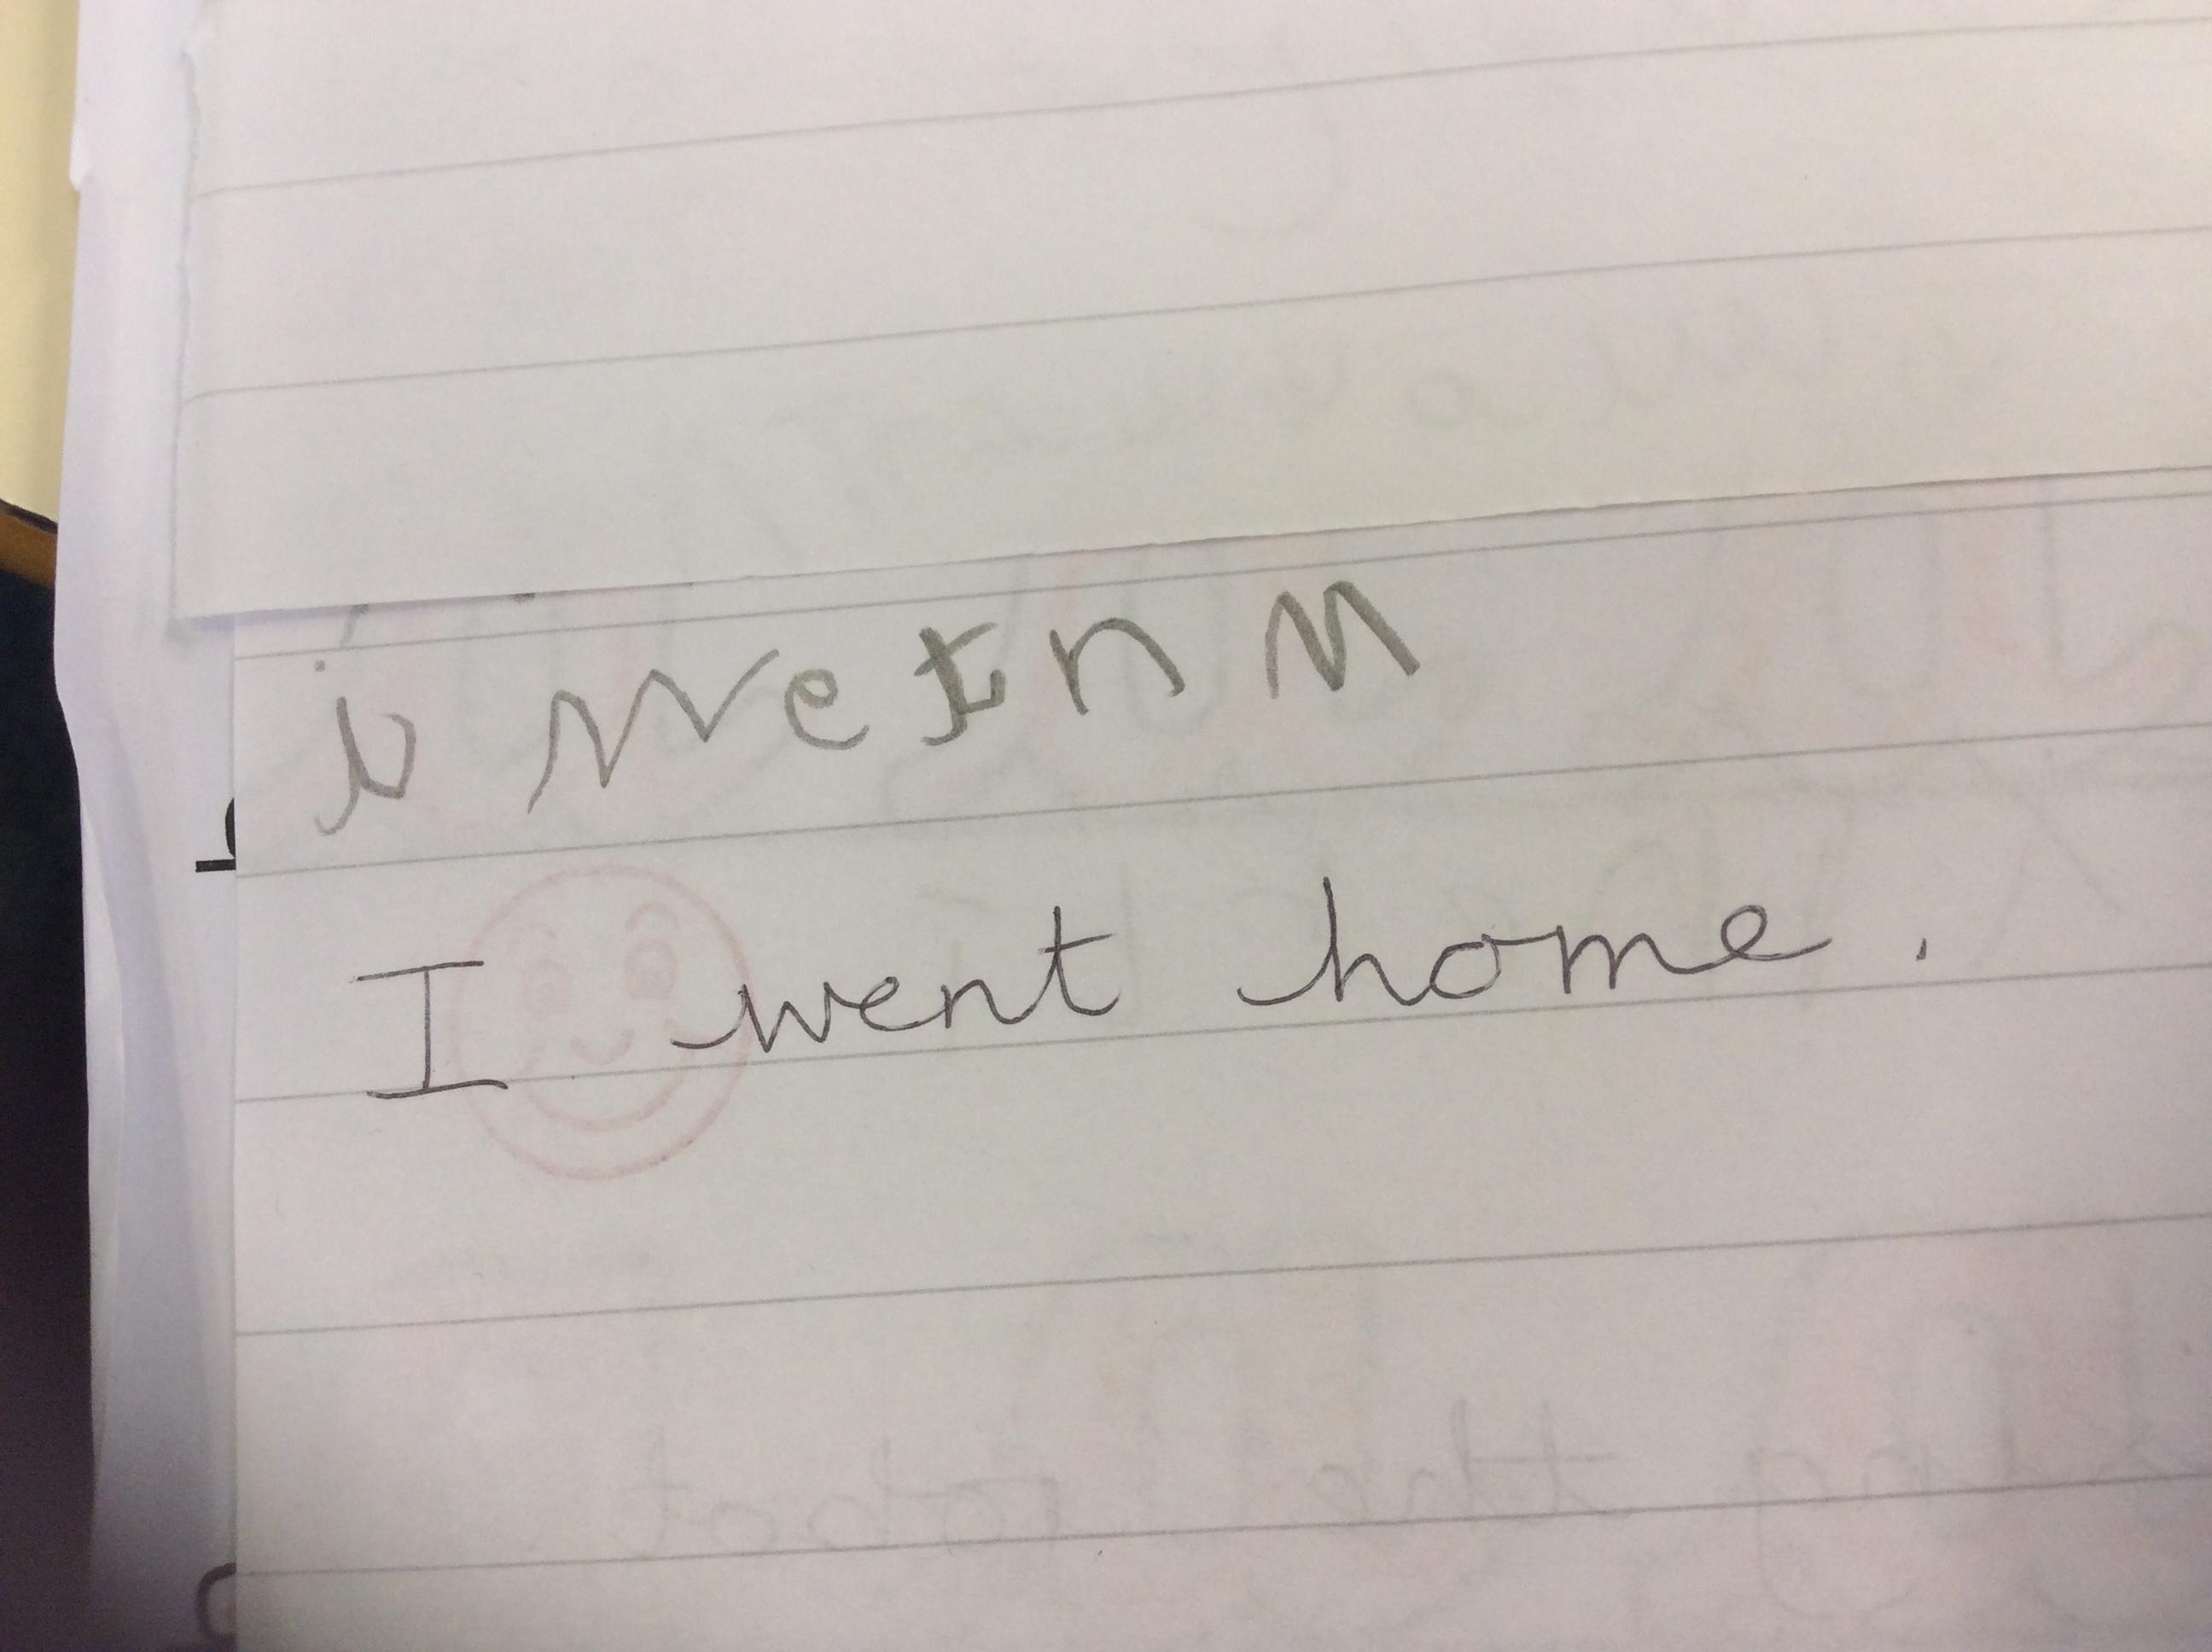 i wetn m
I went home.